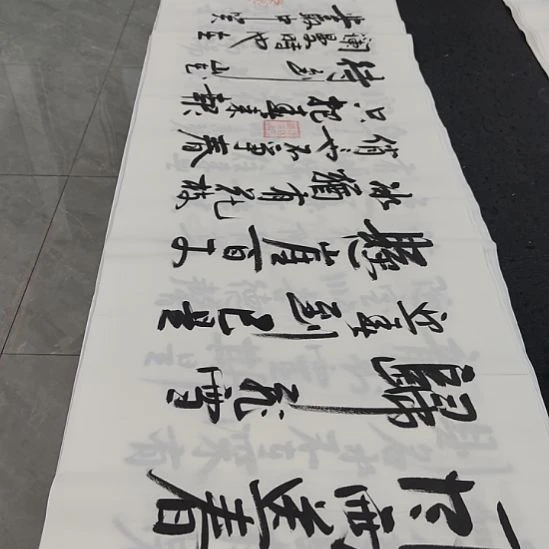 風雨送春
歸飛雪
迎春到已是
懸崖百丈
冰猶有花枝
俏也不爭春
只把春來報
待到山花
爛漫時她在
叢中笑